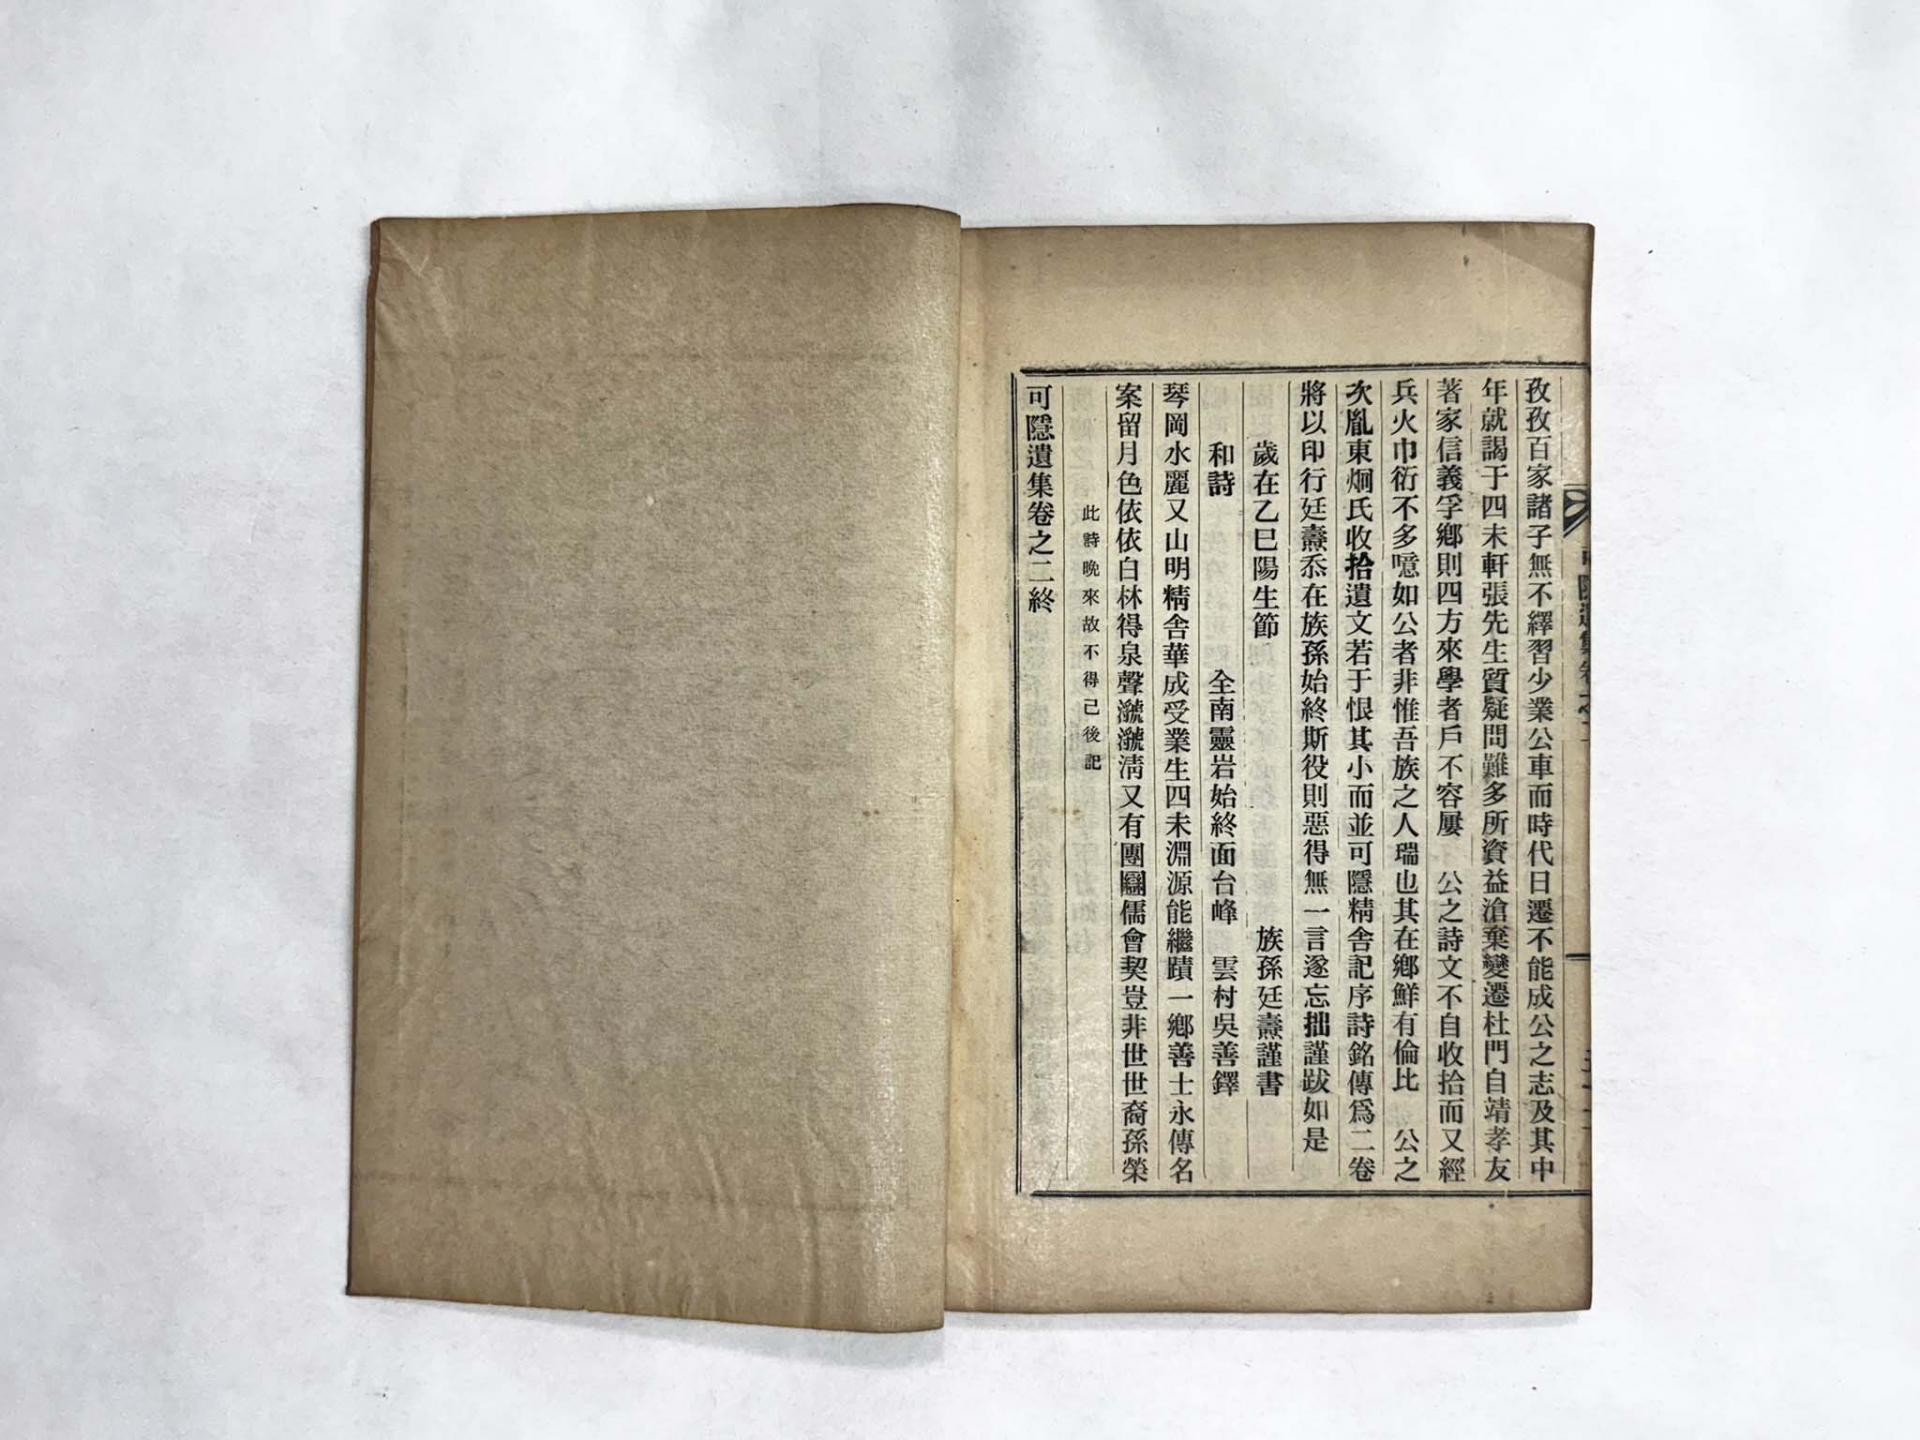 孜孜百家諸子無不繹習少業公車而時代日遷不能成公之志及其中
年就謁于四未軒張先生質疑問難多所資益滄棄變遷杜門自靖孝友
著家信義孚鄕則四方來學者戶不容屢 公之詩文不自收拾而又經
兵火巾衍不多噫如公者非惟吾族之人瑞也其在鄕鮮有倫比 公之
次胤東炯氏收拾遺文若于恨其小而並可隱精舍記序詩銘傳爲二卷
將以印行廷燾忝在族孫始終斯役則惡得無一言遂忘拙謹跋如是
歲在乙巳陽生節 族孫廷燾謹書
和詩 全南靈岩始終面台峰 雲村吳善鐸
琴岡水麗又山明精舍華成受業生四未淵源能繼蹟一鄕善士永傳名
案留月色依依白林得泉聲㶁㶁淸又有團圞儒會契豈非世世裔孫榮
此詩晩來故不得已後記
可隱遺集卷之二終